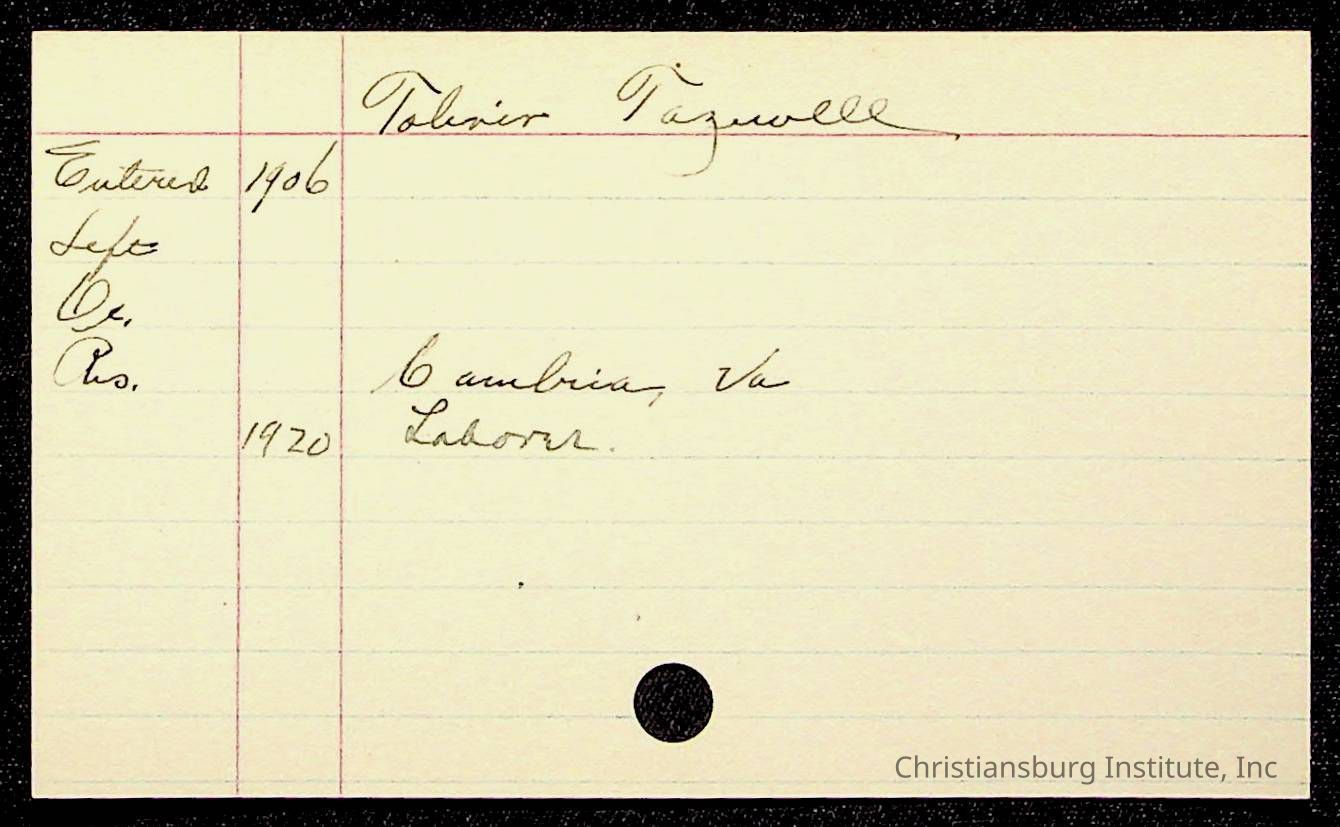 Toliver Tazewell
Entered 1906
Left
Oc.
Res. Cambria, Va
1920 Laborer.
Christiansburg Institute, Inc